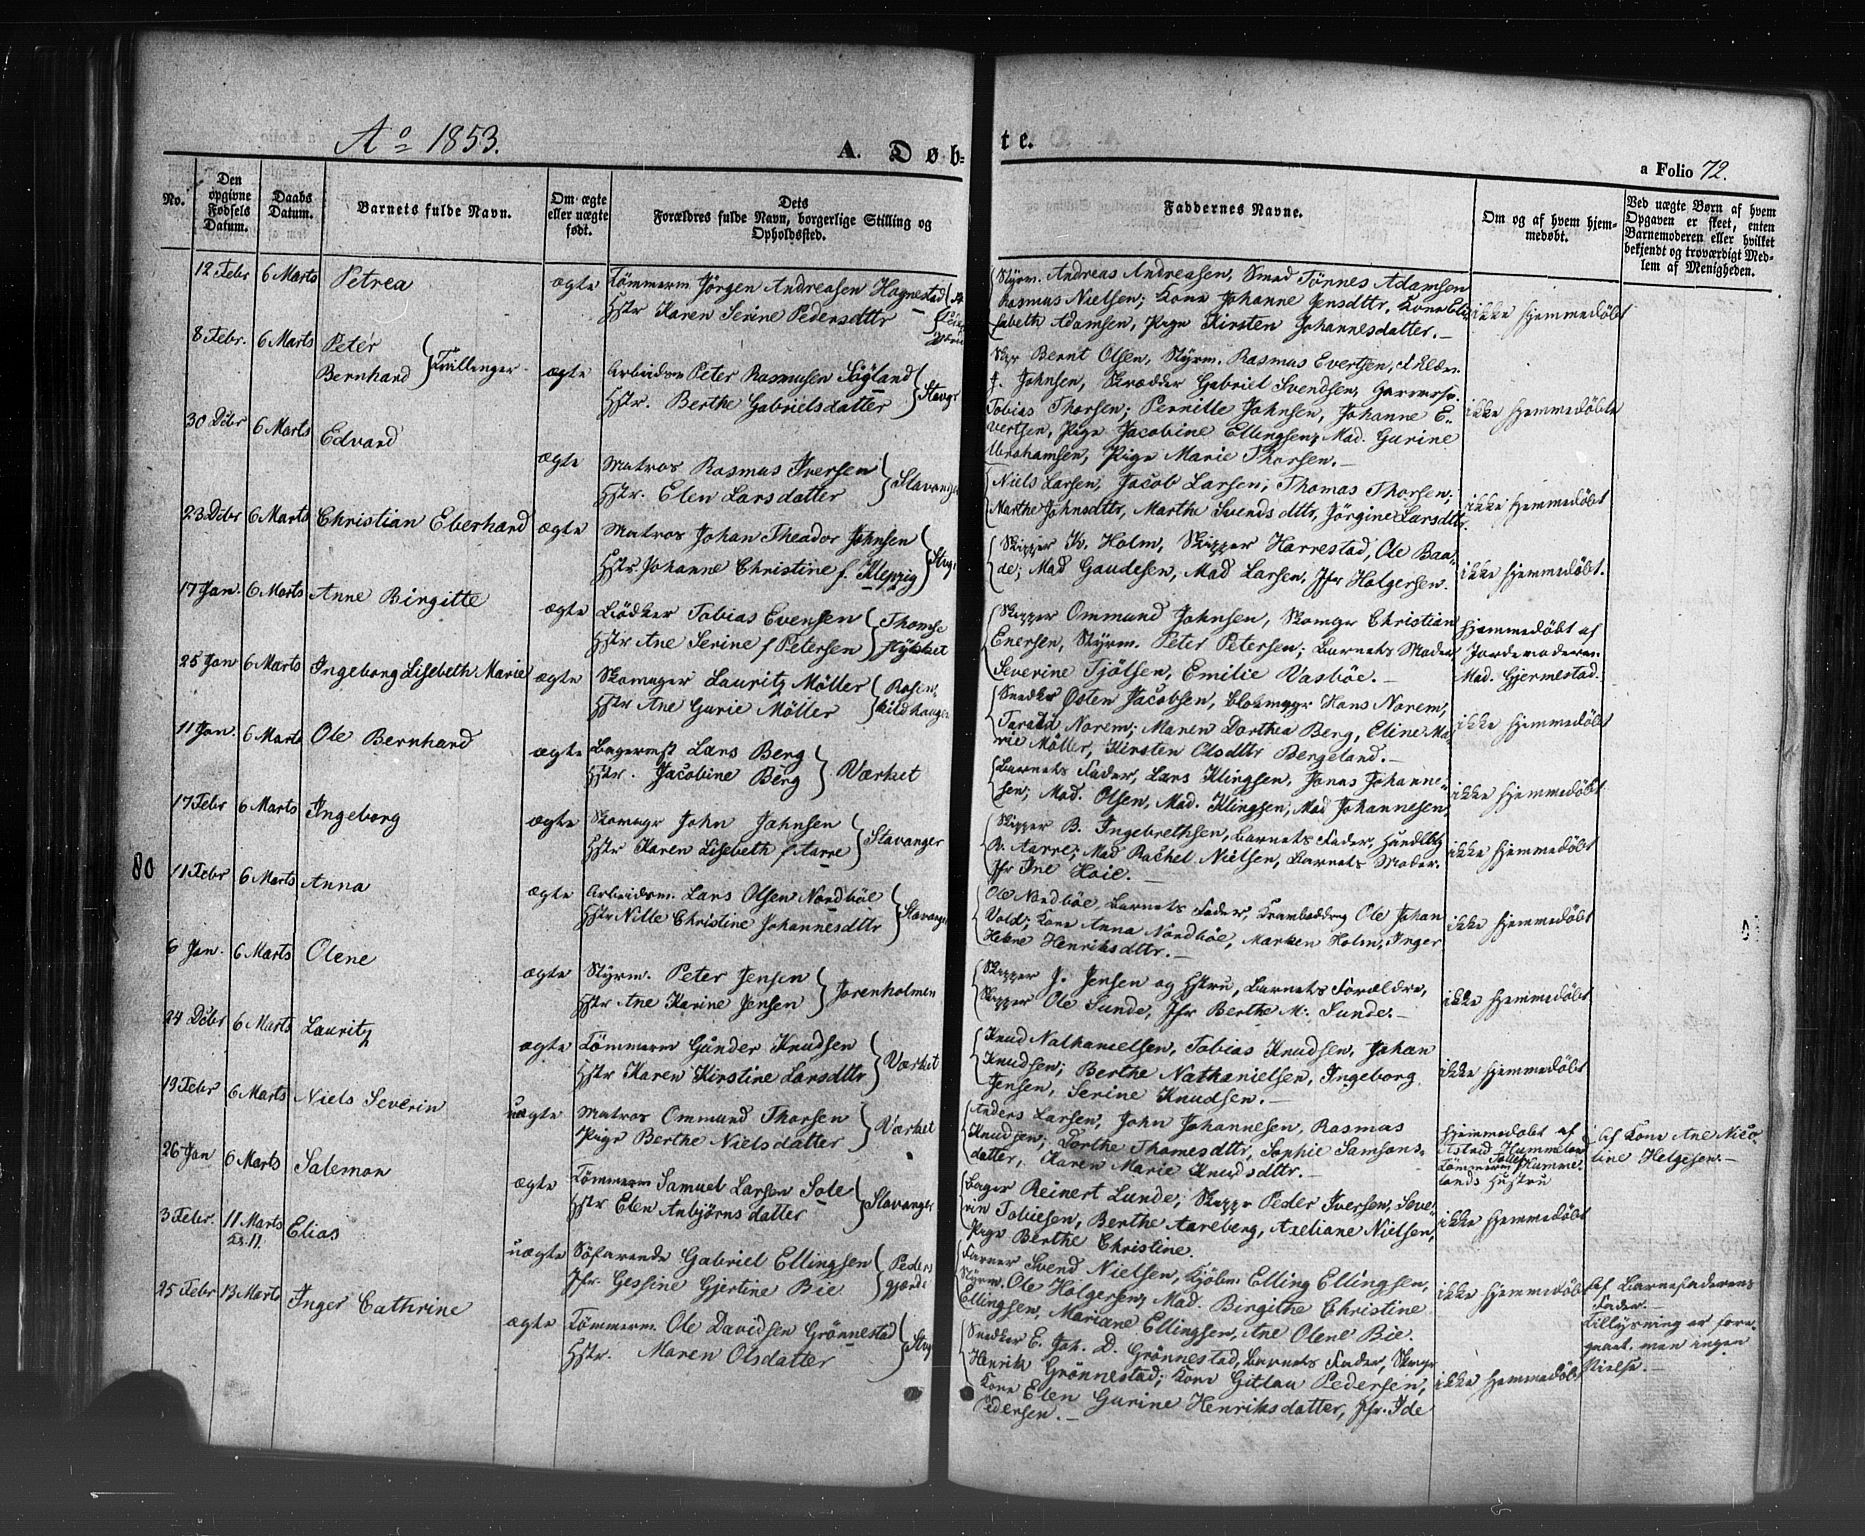 Ao 1853.
A. Døb-
te.
a Folio 72.
No.
Den
opgivne
Fødsels
Datum.
Daabs
Datum.
Barnets fulde Navn.
Om ægte
eller uægte
født.
Dets
Forældres fulde Navn, borgerlige Stilling og
Opholdssted.
Faddernes Navne.
Om og af hvem hjem-
medøbt.
Ved uægte Børn af hvem
Opgaven er skeet, enten
Barnemoderen eller hvilket
bekjendt og troværdigt Med-
lem af Menigheden.
12 Febr 6 Marts Petrea ægte Tömmerm Jörgen Andreasen Hognestad
Hstr Karen Serine Pedersdttr
Styrm. Andreas Andreasen, Smed Tönnes Adamsen
Rasmus Nielsen; Kone Johanne Jensdttr, Kone Eli-
sabeth Adamsen, Pige Kirsten Johannesdatter.-
ikke hjemmedöbt
8 Febr. 6 Marts Peter
Bernhard Tvillinger ægte Arbeidsm Peter Rasmusen Sögland
Hstr. Berthe Gabrielsdatter Stavgr
Skp Bernt Olsen, Styrm. Rasmus Evertsen,
J. Johnsen, Skrædder Gabriel Svendsen,
Tobias Thorsen; Pernille Johnsen, Johanne E-
vertsen, Pige Jacobine Ellingsen, Mad. Gurine
Abrahamsen, Pige Marie Thorsen.-
ikke hjemmedöbte
30 Dcbr 6 Marts Edvard ægte Matros Rasmus Iversen
Hstr. Elen Larsdatter Stavanger
Niels Larsen, Jacob Larsen, Thomas Thorsen;
Marthe Johnsdttr, Marthe Svendsdttr, Jörgine Larsdttr.
ikke hjemmedöbt
23 Dcbr 6 Marts Christian Eberhard ægte Matros Johan Theador Johnsen
Hstr Johanne Christine f. Klepzig Stvgr
Skipper K. Holm, Skipper Harrestad, Ole Baa-
de; Mad Gaudesen, Mad Larsen, Jfr Holgersen.
ikke hjemmedöbt.
17 Jan. 6 Marts Anne Birgitte ægte Bödker Tobias Evensen
Hstr Ane Serine f Petersen Thomse
stykket
Skipper Ommund Johnsen, Skomgr Christian
Enersen, Styrm. Peter Petersen; Barnets Moder,
Severine Tjölsen, Emilie Vasböe.-
hjemmedöbt af
Jordemoderen
Mad. Gjermestad.
25 Jan 6 Marts Ingeborg Lisebeth Marie ægte Skomager Lauritz Möller
Hstr Ane Gurie Möller Rosen-
kildhaugen
Snedker Östen Jacobsen, Blokmagr Hans Norem,
Norem; Maren Dorthea Berg, Eline Ma-
rie Möller, Kirsten Olsdttr Bergeland.-
ikke hjemmedöbt
11 Jan. 6 Marts Ole Bernhard ægte Bagermst Lars Berg
Hstr. Jacobine Berg Værket
Barnets Fader, Lars Klingsen, Jonas Johanne-
sen; Mad. Olsen, Mad. Klingsen, Mad Johannesen,
ikke hjemmedöbt
17 Febr 6 Marts Ingeborg ægte Skomgr John Johnsen
Hstr Karen Lisebeth f Aarre Stavanger
Skipper B. Ingebrethsen, Barnets Fader,
B. Aarre; Mad Rachel Nielsen, Barnets Moder.
Jfr Ine Hoie.-
ikke hjemmedöbt
80
11 Febr 6 Marts Anna ægte Arbeidsm. Lars Olsen Nordböe
Hstr Nille Christine Johannesdttr Stavanger
Ole Nordböe, Barnets Fader, Ole Johan
Vold; Kone Anna Nordböe, Marken Holm, Inger
Helene Henriksdttr.-
ikke hjemmedöbt
6 Jan. 6 Marts Olene ægte Styrm. Peter Jensen
Hstr Ane Karine Jensen Jorenholmen
Skipper J. Jensen og Hstru, Barnets Forældre,
Skipper Ole Sunde, Jfr Berthe M. Sunde.-
ikke hjemmedöbt
24 Dcbr 6 Marts Lauritz ægte Tömmerm Gunder Knudsen
Hstr Karen Kirstine Larsdttr Værket
Knud Nathanielsen, Tobias Knudsen, Johan
Knudsen; Berthe Nathanielsen, Ingeborg
Jensen, Serine Knudsen.-
ikke hjemmedöbt
19 Febr 6 Marts Niels Severin uægte Matros Ommund Thorsen
Pige Berthe Nielsdatter Værket
Anders Larsen, John Johannesen, Rasmus
Knudsen; Dorthe Thomesdttr, Sophie Samsons-
datter, Karen Marie Knudsdttr.-
hjemmedöbt af
Astrid
Tömmerm
lands Hustru
Af Kone Ane Nico-
line Helgesen.-
26 Jan 6 Marts Salemon ægte Tömmerm Samuel Larsen Sole
Hstr Elen Anbjörnsdatter Stavanger
Bager Reinert Lunde; Skipper Peder Iversen, Seve-
rin Tobiesen, Berthe Aareberg, Axeliane Nielsen,
Pige Berthe Christine.
ikke hjemmedöbt
3 Febr. 11 Marts Elias uægte Söfarende Gabriel Ellingsen
Jfr. Gessine Gjertine Bie Peders
gjærde
Farver Svend Nielsen, Kjöbm Elling Ellingsen,
Styrm. Ole Holgersen; Mad. Birgithe Christine
Ellingsen, Mariane Ellingsen, Ane Olene Bie.
ikke hjemmedöbt
af Barnefaderens
Fader.-
Tillysning er fore-
gaaet, men ingen
Vielse.-
25 Febr 13 Marts Inger Cathrine ægte Tömmerm. Ole Davidsen Grönnestad
Hstr. Maren Olsdatter Stvgr
Snedker E. Joh. D. Grönnestad, Barnets Fader,
Henrik Grönnestad; Kone Gitlau Pedersen,
Kone Elen Gurine Henriksdatter, Jfr. Ide
Pedersen.-
ikke hjemmedöbt